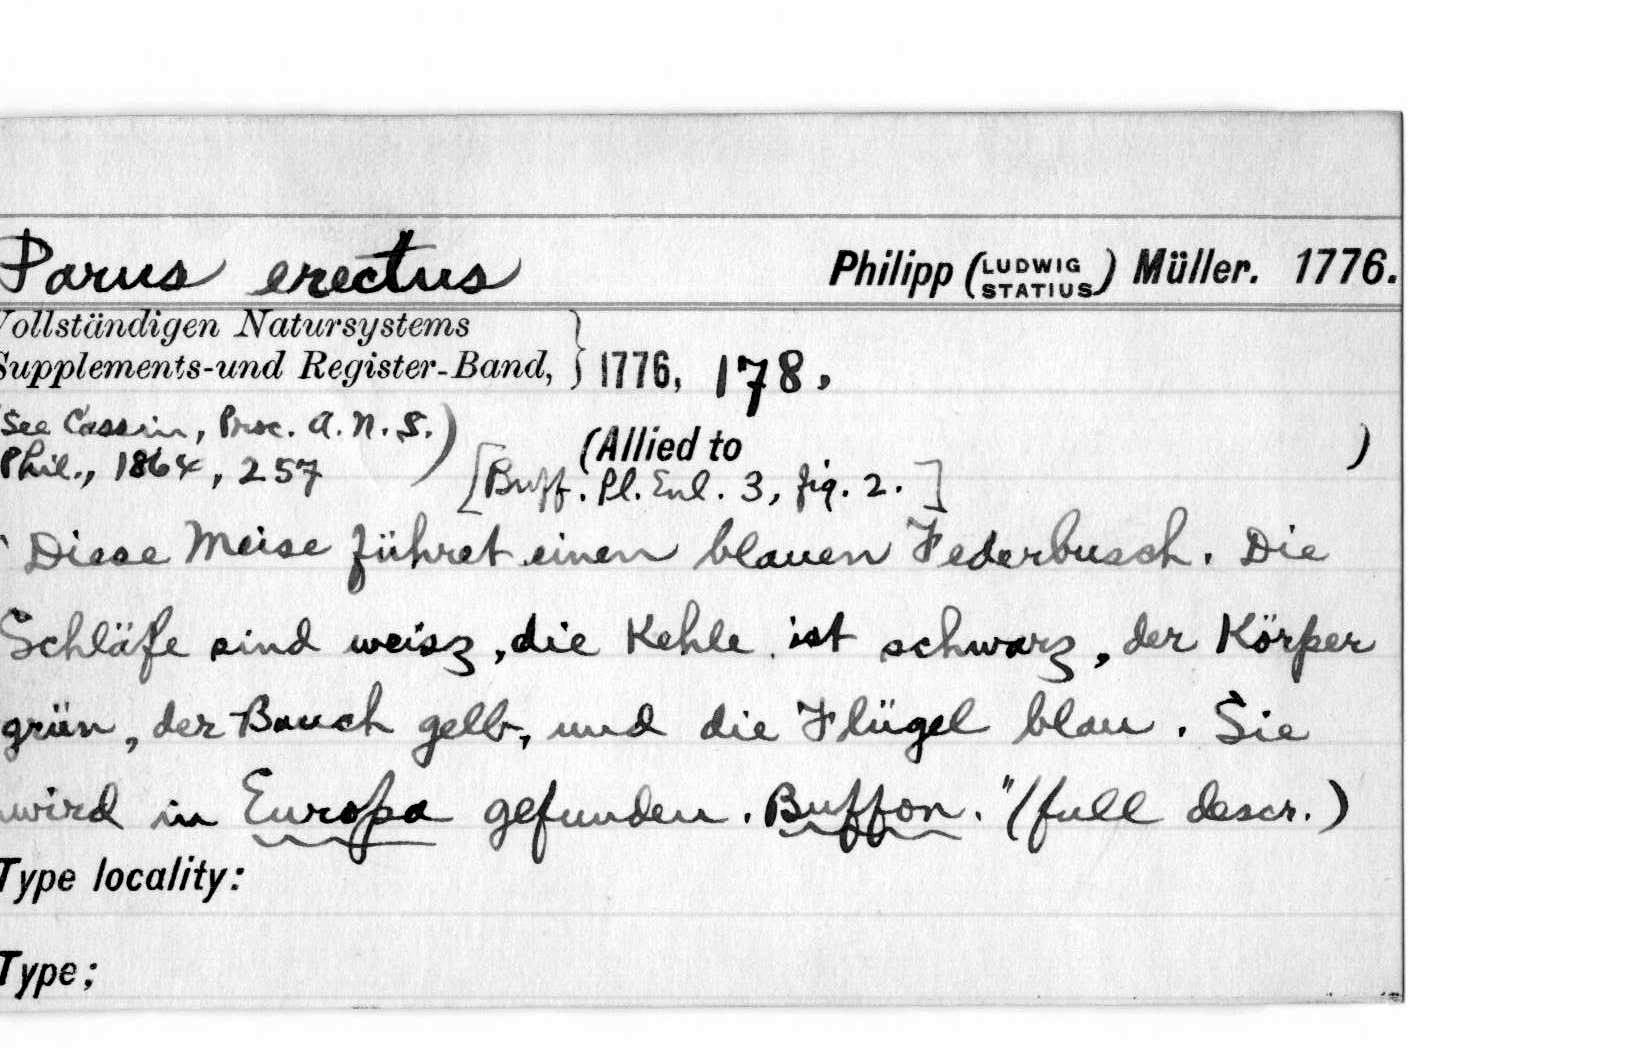 Parus erectus Philipp (LUDWIG STATIUS) Müller. 1776.
Vollständigen Natursystems
Supplements-und Register-Band, } 1776, 178,
(See Cassin, Proc. A.N.S.)
Phil., 1864, 257
(Allied to )
[Buff. Pl. Enl. 3, fig. 2.]
" Diese Meise führet einen blauen Federbusch. Die
Schläfe sind weisz, die Kehle ist schwarz, der Körper
grün, der Bauch gelb, und die Flügel blau. Sie
wird in Europa gefunden. Buffon." (full descr.)
Type locality:
Type;